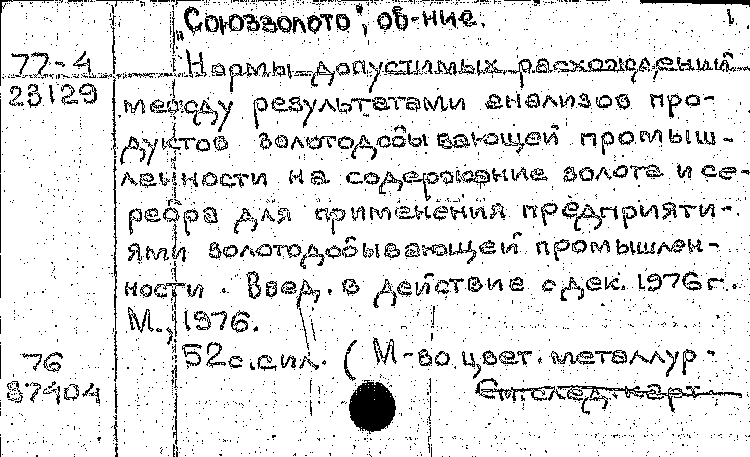 "Союззолото", об-ние.
1
77-4 Нормы допустимых расхождений
23129 между результатами анализов про-
дуктов золотодобывающей промыш-
ленности на содержание золота и се-
ребра для применения предприяти-
ями золотодобывающей промышлен-
ности. Введ. в действие с дек. 1976 г.
М., 1976.
76 52 с. с ил. (М-во цвет. металлур-
87404 См. след. карт.